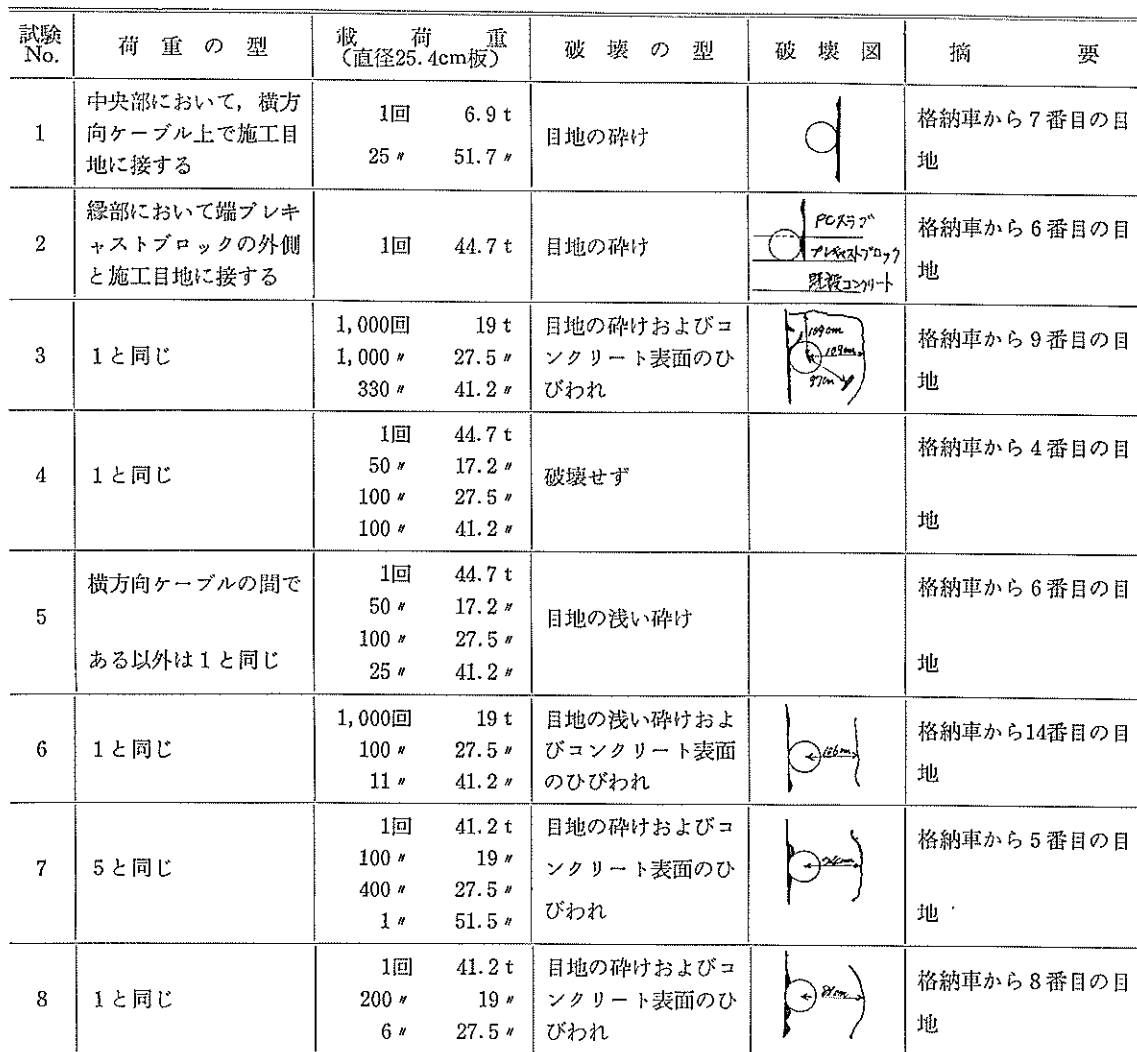 試験 No. 荷重の型 載荷重 (直径25.4cm板) 破壊の型 破壊図 摘要
1 中央部において，横方向ケーブル上で施工目地に接する 1回 6.9t 25〃 51.7〃 目地の砕け 格納車から7番目の目地
2 縁部において端プレキャストブロックの外側と施工目地に接する 1回 44.7t 目地の砕け PCスラブ プレキャストブロック 既設コンクリート 格納車から6番目の目地
3 1と同じ 1,000回 19t 1,000〃 27.5〃 330〃 41.2〃 目地の砕けおよびコンクリート表面のひびわれ 109cm 109cm 97cm 格納車から9番目の目地
4 1と同じ 1回 44.7t 50〃 17.2〃 100〃 27.5〃 100〃 41.2〃 破壊せず 格納車から4番目の目地
5 横方向ケーブルの間である以外は1と同じ 1回 44.7t 50〃 17.2〃 100〃 27.5〃 25〃 41.2〃 目地の浅い砕け 格納車から6番目の目地
6 1と同じ 1,000回 19t 100〃 27.5〃 11〃 41.2〃 目地の浅い砕けおよびコンクリート表面のひびわれ 格納車から14番目の目地
7 5と同じ 1回 41.2t 100〃 19〃 400〃 27.5〃 1〃 51.5〃 目地の砕けおよびコンクリート表面のひびわれ 格納車から5番目の目地
8 1と同じ 1回 41.2t 200〃 19〃 6〃 27.5〃 目地の砕けおよびコンクリート表面のひびわれ 格納車から8番目の目地